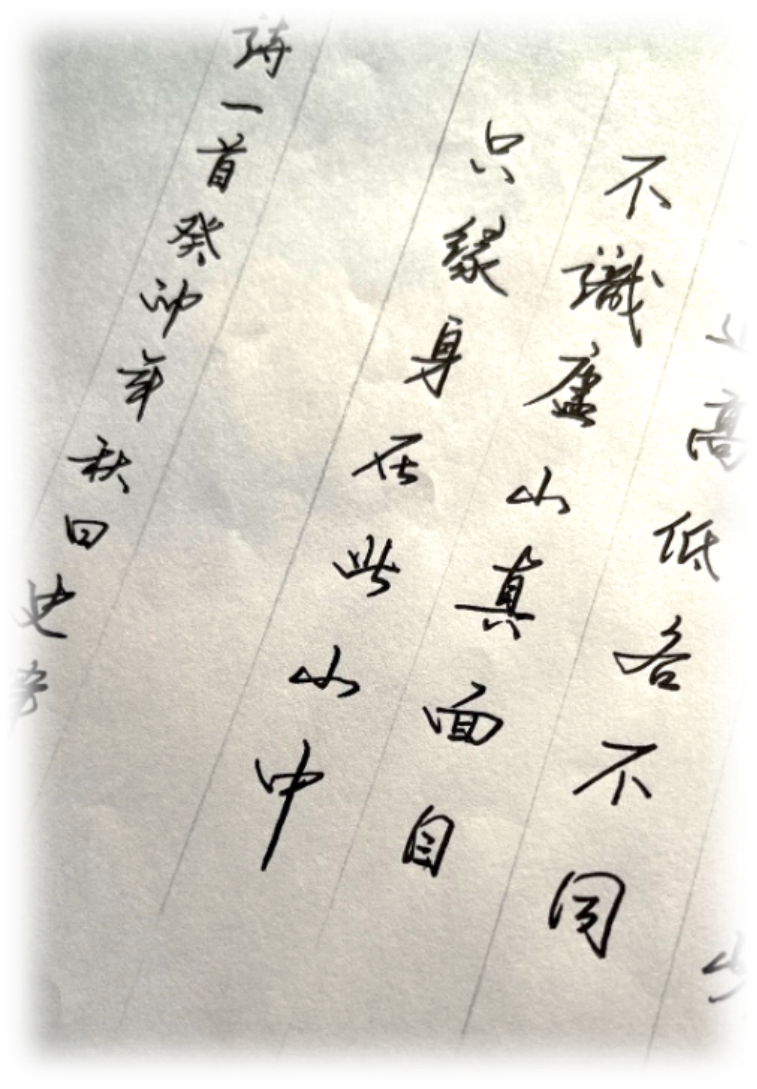 高低各不同
不識廬山真面目
只緣身在此山中
詩一首癸卯年秋日史